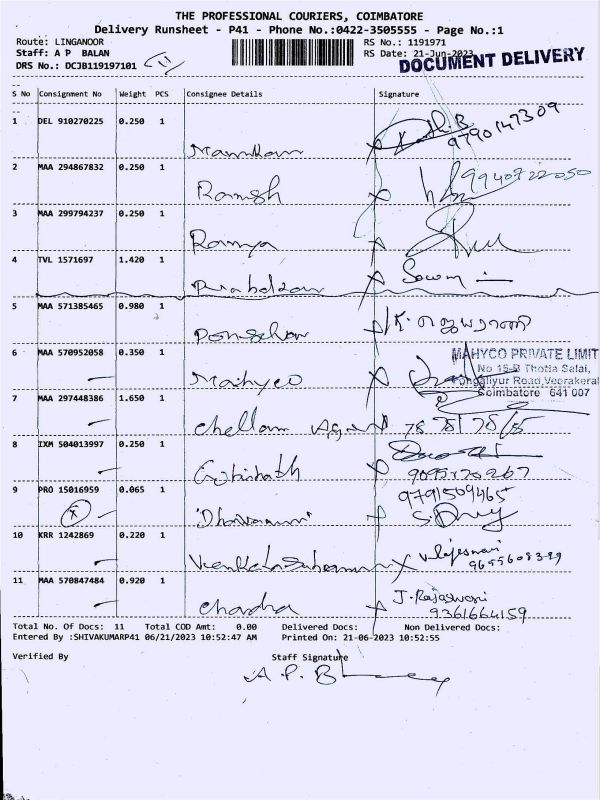 THE PROFESSIONAL COURIERS, COIMBATORE
Delivery Runsheet - P41 - Phone No.:0422-3505555 - Page No.:1
Route: LINGANOOR
RS No.: 1191971
Staff: A P BALAN
RS Date: 21-Jun-2023
DRS No.: DCJB119197101
11
DOCUMENT DELIVERY
S No Consignment No Weight PCS Consignee Details Signature
1 DEL 910270225 0.250 1
9790147309
2 MAA 294867832 0.250 1
Ramesh 9940722050
3 MAA 299794237 0.250 1
Ramya
4 TVL 1571697 1.420 1
5 MAA 571385465 0.980 1
6 MAA 570952058 0.350 1
MAHYCO PRIVATE LIMIT
No 15-B Thotia Salai,
Pongaliyur Road,Veerakeral
Coimbatore 641 007
Mahyco
7 MAA 297448386 1.650 1
Chellam
8 IXM 504013997 0.250 1
9 PRO 15016959 0.065 1
9791509465
10 KRR 1242869 0.220 1
11 MAA 570847484 0.920 1
Chandra J. Rajaswari
9361664159
Total No. Of Docs: 11 Total COD Amt: 0.00 Delivered Docs: Non Delivered Docs:
Entered By :SHIVAKUMARP41 06/21/2023 10:52:47 AM Printed On: 21-06-2023 10:52:55
Verified By Staff Signature
A.P.B